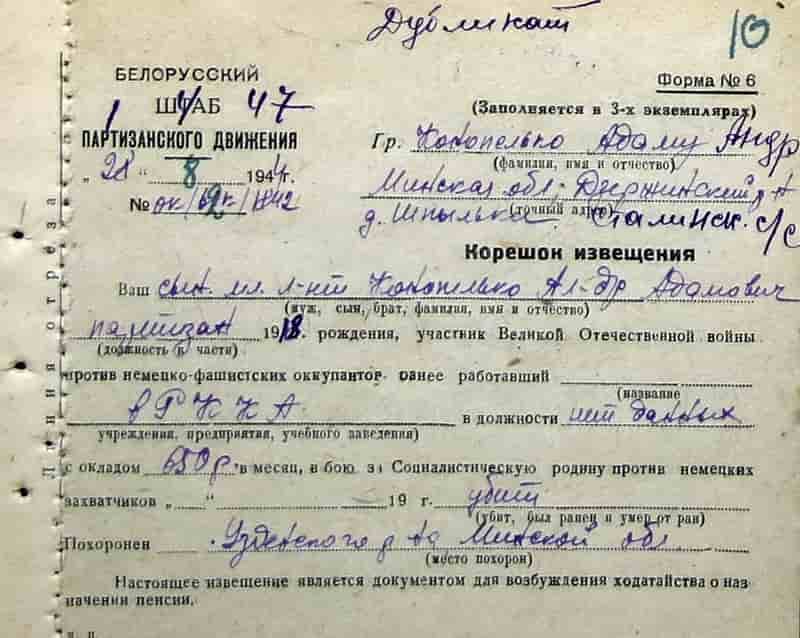 Дубликат
10
БЕЛОРУССКИЙ
ШТАБ
1 4 47
ПАРТИЗАНСКОГО ДВИЖЕНИЯ
„28" 8 1944г.
№
Форма № 6
(Заполняется в 3-х экземплярах)
Гр. Конопелько Адаму Андр
(фамилия, имя и отчество)
Минская обл. Дзержинский р-н
д. Шпильки Сталинск. с/с
(точный адрес)
Корешок извещения
Ваш сын мл. л-нт Конопелько Ал-др Адамович
(муж, сын, брат, фамилия, имя и отчество)
партизан 1918. рождения, участник Великой Отечественной войны
(должность в части)
против немецко-фашистских оккупантов ранее работавший
(название
в РККА в должности нет данных
учреждения, предприятия, учебного заведения)
с окладом 650 р. в месяц, в бою за Социалистическую родину против немецких
захватчиков „ " 19 г. убит
(убит, был ранен и умер от ран)
Похоронен Узденского р-на Минской обл.
(место похорон)
Настоящее извещение является документом для возбуждения ходатайства о наз
начении пенсии.
Линия отреза